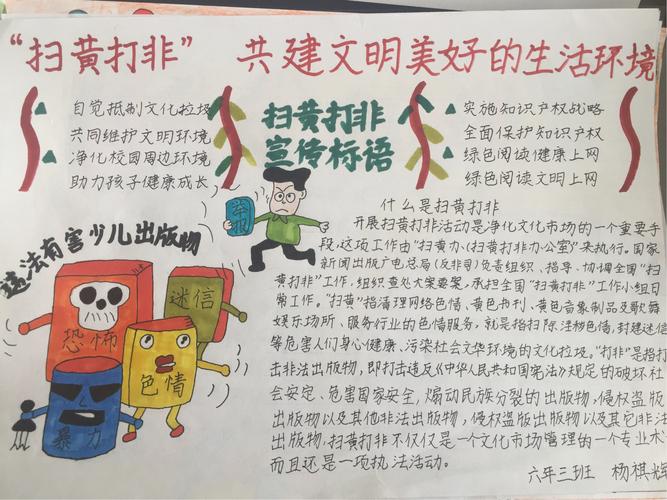 “扫黄打非” 共建文明美好的生活环境
自觉抵制文化垃圾
共同维护文明环境
净化校园周边环境
助力孩子健康成长
扫黄打非
宣传标语
实施知识产权战略
全面保护知识产权
绿色阅读健康上网
绿色阅读文明上网
举报
违法有害少儿出版物
恐怖
迷信
色情
暴力
什么是扫黄打非
开展扫黄打非活动是净化文化市场的一个重要手
段,这项工作由“扫黄办”(扫黄打非办公室)来执行。国家
新闻出版广电总局(反非司)负责组织、指导、协调全国“扫
黄打非”工作,组织查处大案要案,承担全国“扫黄打非”工作小组日
常工作。“扫黄”指清理网络色情、黄色书刊、黄色音象制品及歌舞
娱乐场所、服务行业的色情服务,就是指扫除淫秽色情,封建迷信
等危害人们身心健康、污染社会文华环境的文化垃圾。“打非”是指打
击非法出版物,即打击违反《中华人民共和国宪法》规定的破坏社
会安定、危害国家安全,煽动民族分裂的出版物,侵权盗版
出版物以及其他非法出版物,侵权盗版出版物以及其它非法
出版物,扫黄打非不仅仅是一个文化市场管理的一个专业术
而且还是一项执法活动。
六年三班 杨祺辉